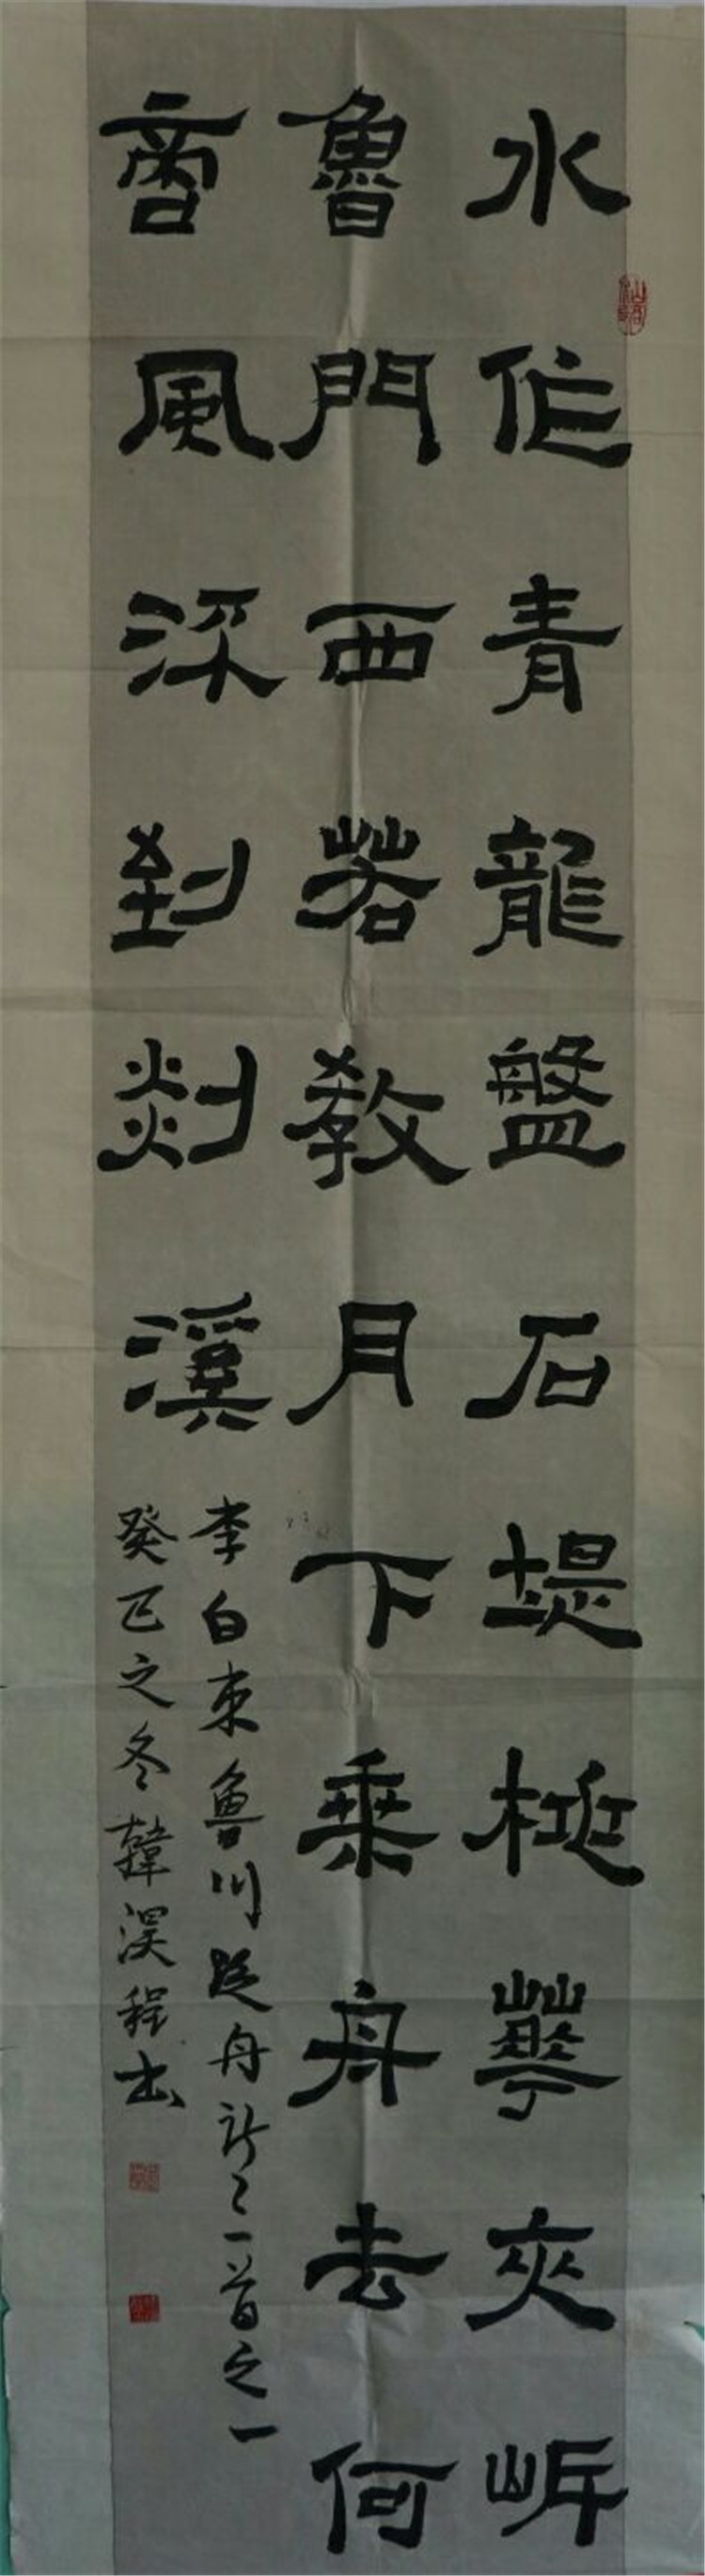 水作青龍盤石堤桃華夾岸
魯門西若教月下乘舟去何
啻風深到剡溪
李白東魯門泛舟詩二首之一
癸巳之冬韓漢程书